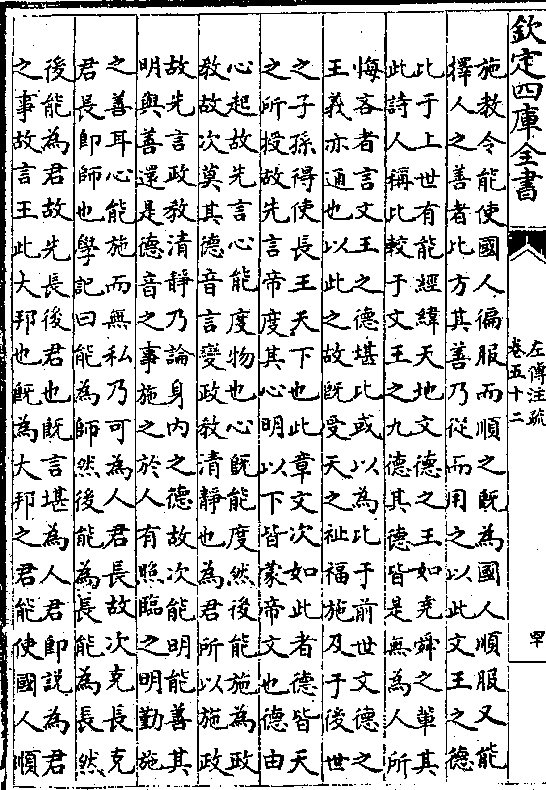 欽定四庫全書
左傳注疏
卷五十二
罕
施教令能使國人徧服而順之既為國人順服又能
擇人之善者比方其善乃從而用之以此文王之德
比于上世有能經緯天地文德之王如堯舜之輩其
此詩人稱比較于文王之九德其德皆是無為人所
悔吝者言文王之德堪比或以為比于前世文德之
王義亦通也以此之故既受天之祉福施及于後世
之子孫得使長王天下也此章文次如此者德皆天
之所授故先言帝度其心明以下皆蒙帝文也德由
心起故先言心能度物也心既能度然後能施為政
教故次莫其德音言變政教清靜也為君所以施政
故先言政教清靜乃論身內之德故次能明能善其
明與善還是德音之事施之於人有照臨之明勤施
之善耳心能施而無私乃可為人君長故次克長克
君長即師也學記曰能為師然後能為長能為長然
後能為君故先長後君也既言堪為人君即説為君
之事故言王此大邦也既為大邦之君能使國人順